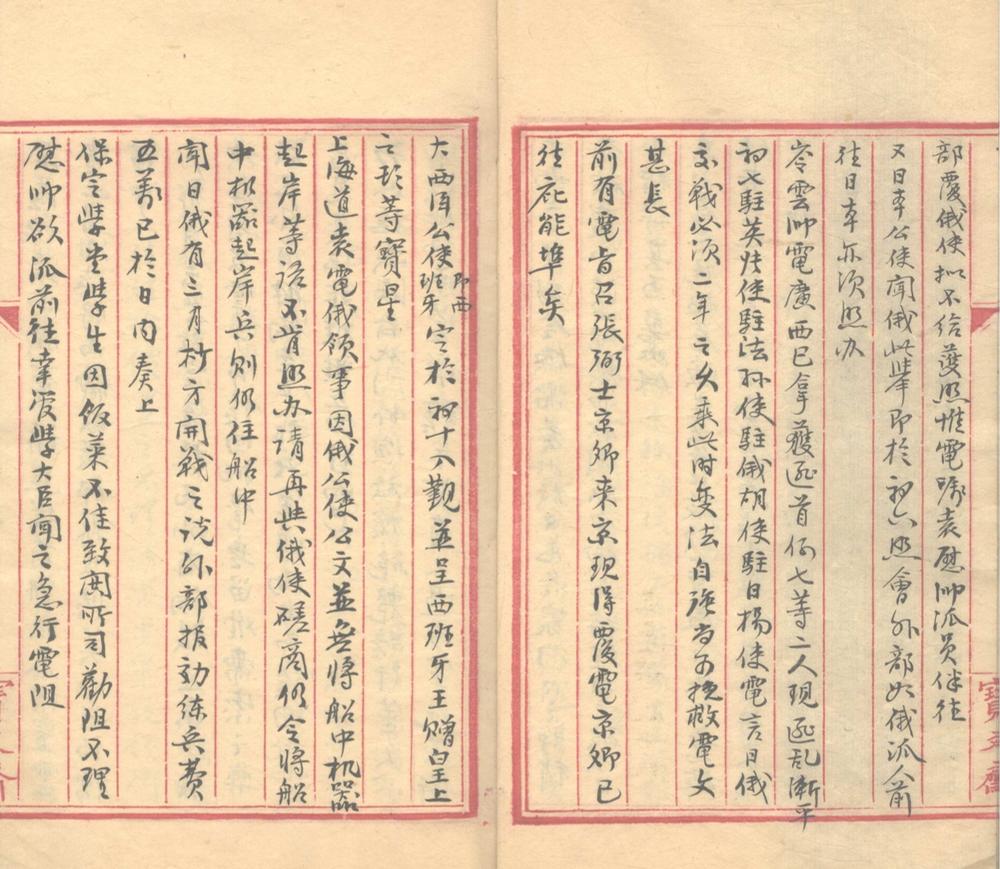 部覆俄使擬不給護照惟電囑袁慰帥派員伴往
又日本公使聞俄此舉即於初六照會外部如俄派人前
往日本亦須照办
岑雲帥電廣西已拿獲匪首伍七等二人現匪乱漸平
初七駐英張使駐法孫使駐俄胡使駐日楊使電言日俄
交戰必須二年之久乘此时变法自強尚可挽救電文
甚長
前有電旨召張弼士京卿来京現得覆電京卿已
往庇能埠矣
大西洋公使即西班牙定於初十入覲並呈西班牙王贈皇上
之頭等寶星
上海道袁電俄領事因俄公使公文並無將船中机器
起岸等语不肯照办请再與俄使磋商仍令將船
中机器起岸兵則仍住船中
聞日俄有三月杪方開戰之说外部报効练兵費
五萬已於日内奏上
保定學堂學生因飯菜不佳致閧所司勸阻不理
慰帥欲派前往幸張學大臣聞之急行電阻
寶文齋